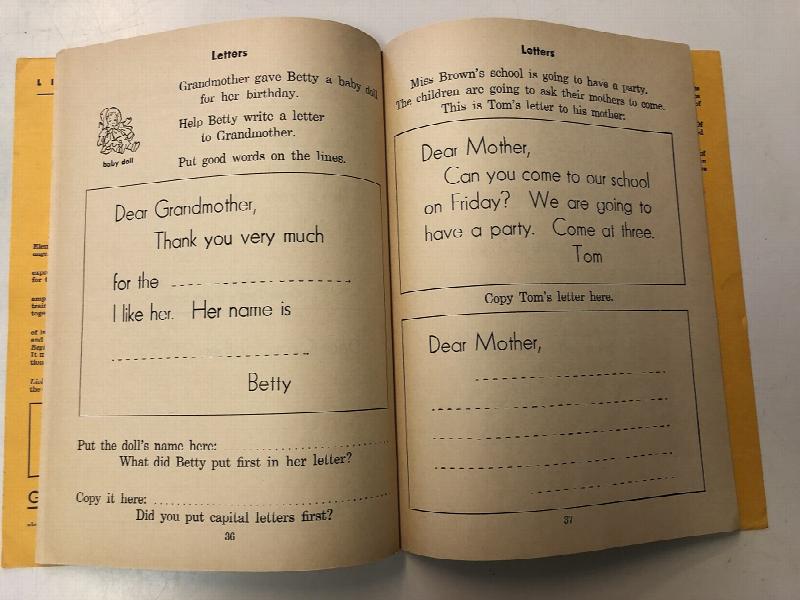 Letters
Grandmother gave Betty a baby doll
for her birthday.
Help Betty write a letter
to Grandmother.
Put good words on the lines.
baby doll
Dear Grandmother,
Thank you very much
for the
I like her. Her name is
Betty
Put the doll's name here:
What did Betty put first in her letter?
Copy it here:
Did you put capital letters first?
36
Letters
Miss Brown's school is going to have a party.
The children are going to ask their mothers to come.
This is Tom's letter to his mother:
Dear Mother,
Can you come to our school
on Friday? We are going to
have a party. Come at three.
Tom
Copy Tom's letter here.
Dear Mother,
37